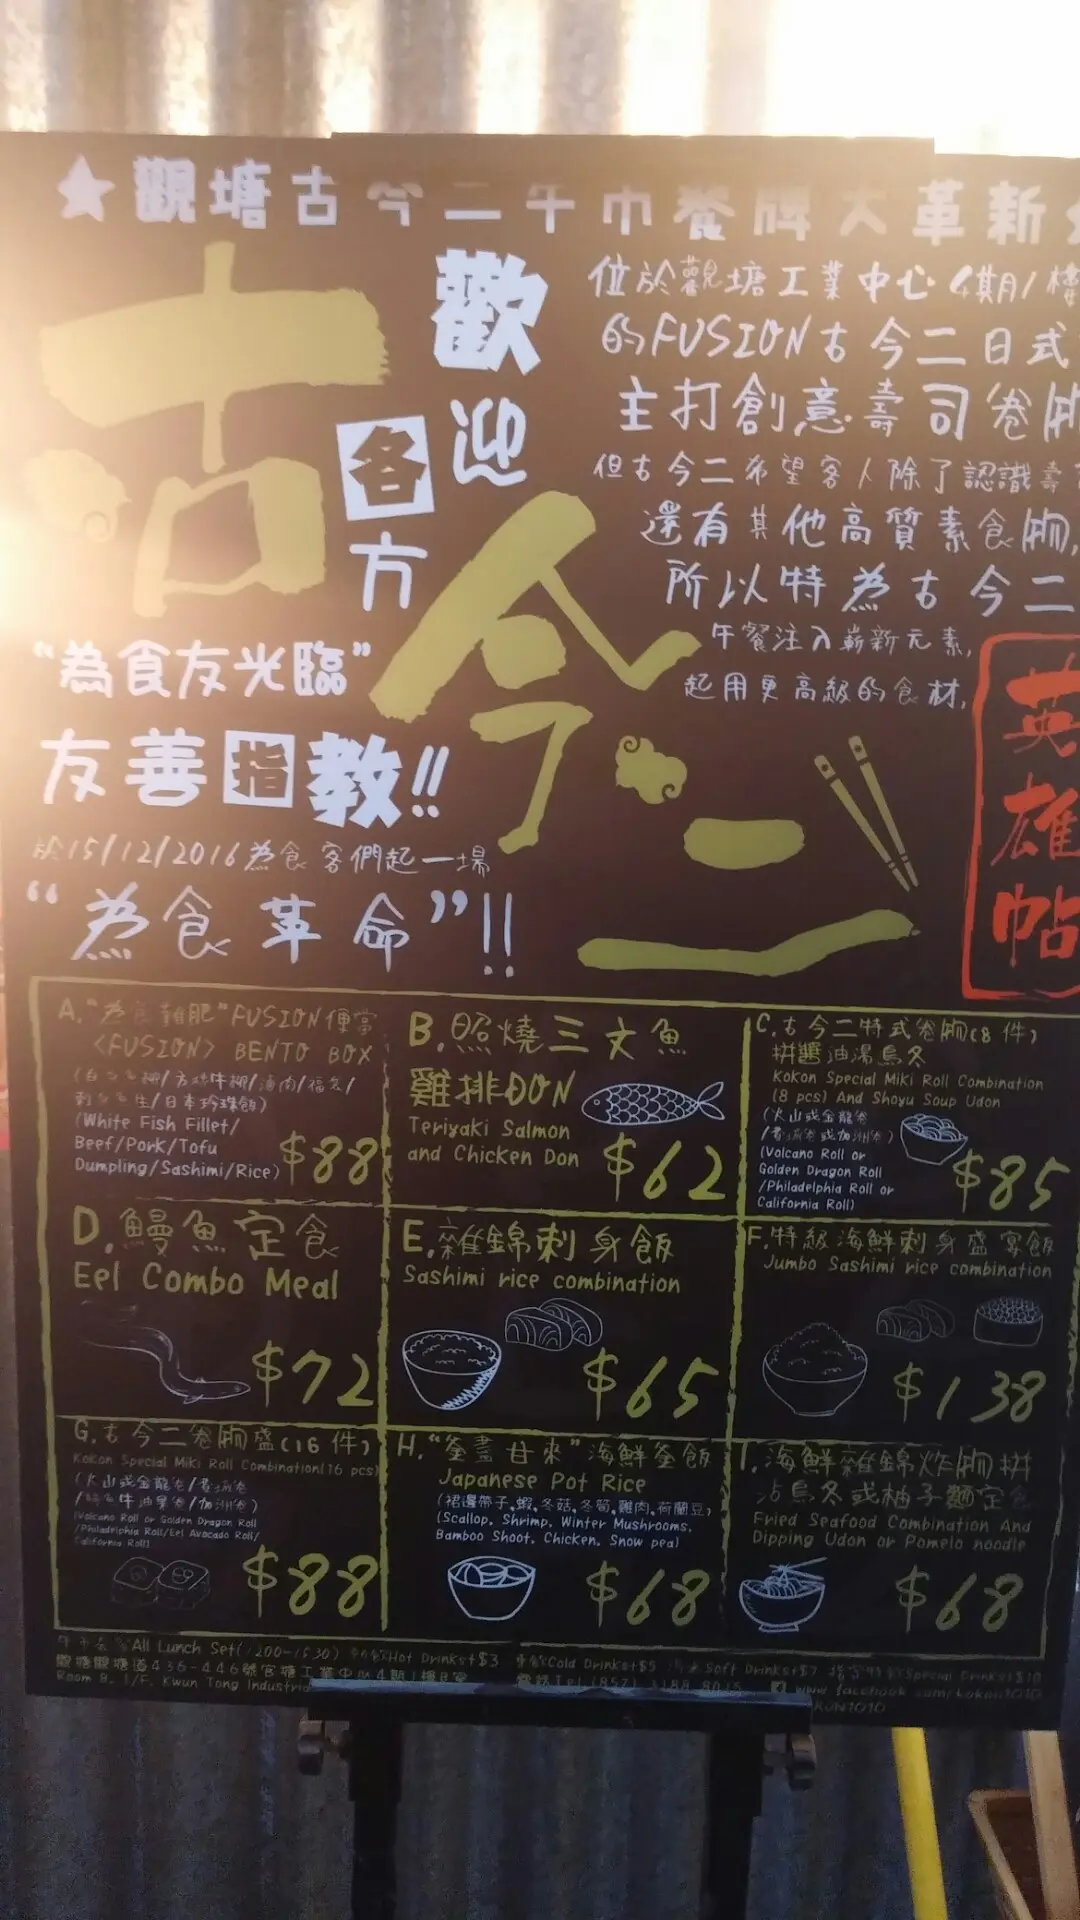 ★觀塘古今二午市餐牌大革新
古今二
歡迎
各方
"為食友光臨"
友善指教!!
於15/12/2016為食客們起一場
"為食革命"!!
位於觀塘工業中心4期1樓
的FUSION古今二日式
主打創意壽司卷物
但古今二希望客人除了認識壽
還有其他高質素食物,
所以特為古今二
午餐注入嶄新元素,
起用更高級的食材,
英雄帖
A."為食難肥"FUSION便當
<FUSION> BENTO BOX
(White Fish Fillet/
Beef/Pork/Tofu
Dumpling/Sashimi/Rice)
$88
B.照燒三文魚
雞排DON
Teriyaki Salmon
and Chicken Don
$62
C.古今二特式卷物(8件)
拼醬油湯烏冬
Kokon Special Miki Roll Combination
(8 pcs) And Shoyu Soup Udon
(火山或金龍卷
/費城卷或加洲卷)
(Volcano Roll or
Golden Dragon Roll
/Philadelphia Roll or
California Roll)
$85
D.鰻魚定食
Eel Combo Meal
$72
E.雜錦刺身飯
Sashimi rice combination
$65
F.特級海鮮刺身盛宴飯
Jumbo Sashimi rice combination
$138
G.古今二卷物盛(16件)
Kokon Special Miki Roll Combination(16 pcs)
(火山或金龍卷/費城卷
/鰻魚牛油果卷/加洲卷)
(Volcano Roll or Golden Dragon Roll
/Philadelphia Roll/Eel Avocado Roll/
California Roll)
$88
H."釜盡甘來"海鮮釜飯
Japanese Pot Rice
(裙邊帶子,蝦,冬菇,冬筍,雞肉,荷蘭豆)
(Scallop, Shrimp, Winter Mushrooms,
Bamboo Shoot, Chicken, Snow pea)
$68
I.海鮮雜錦炸物拼
沾烏冬或柚子麵定食
Fried Seafood Combination And
Dipping Udon or Pomelo noodle
$68
All Lunch Set(1200-1530) Hot Drinks+$3 Cold Drinks+$5 Soft Drinks+$7 Special Drinks+$10
觀塘觀塘道436-446號官塘工業中心4期1樓B室 電話Tel:(852) 3188 8015 www.facebook.com/kokon1010
Room B, 1/F, Kwun Tong Industri